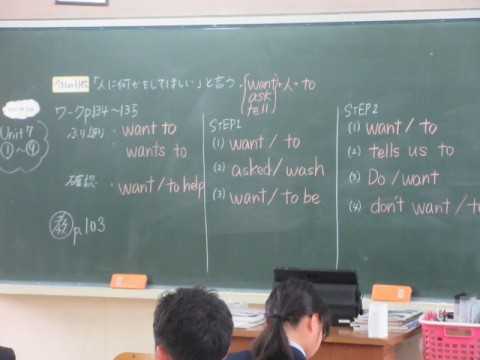 「人に何かをしてほしい」と言う。 want + 人 + to
ask
tell
ワークp134～135
Unit 7
①～④
ふり返り ・want to
・wants to
確認 ・want / to help
教 p.103
STEP1
(1) want / to
(2) asked / wash
(3) want / to be
STEP2
(1) want / to
(2) tells us to
(3) Do / want
(4) don't want / to